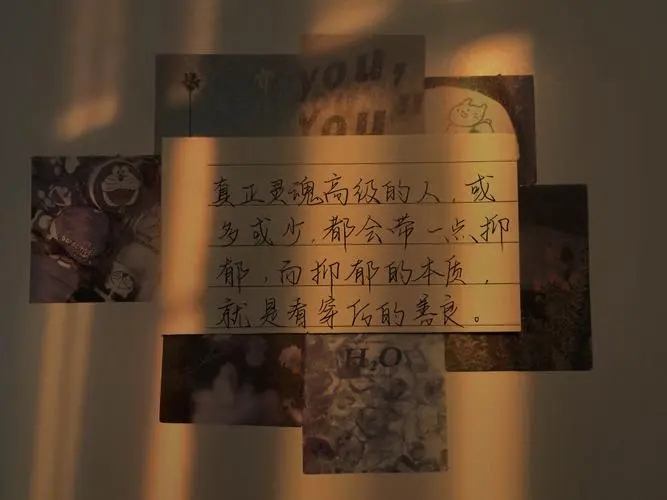 you,
you"
真正灵魂高级的人,或
多或少,都会带一点抑
郁,而抑郁的本质,
就是看穿后的善良。
H₂O